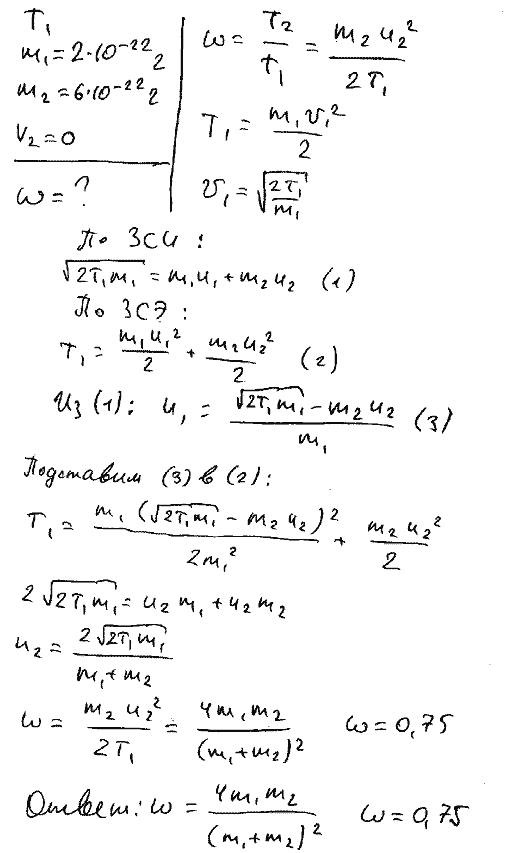 T₁
m₁=2·10⁻²² г
m₂=6·10⁻²² г
V₂=0
ω=?
ω = T₂/T₁ = m₂u₂²/2T₁
T₁ = m₁υ₁²/2
υ₁ = √(2T₁/m₁)
По ЗСИ:
√(2T₁m₁) = m₁u₁ + m₂u₂ (1)
По ЗСЭ:
T₁ = m₁u₁²/2 + m₂u₂²/2 (2)
Из (1): u₁ = (√(2T₁m₁) − m₂u₂)/m₁ (3)
Подставим (3) в (2):
T₁ = m₁(√(2T₁m₁) − m₂u₂)²/2m₁² + m₂u₂²/2
2√(2T₁m₁) = u₂m₁ + u₂m₂
u₂ = 2√(2T₁m₁)/(m₁+m₂)
ω = m₂u₂²/2T₁ = 4m₁m₂/(m₁+m₂)² ω=0,75
Ответ: ω = 4m₁m₂/(m₁+m₂)² ω=0,75